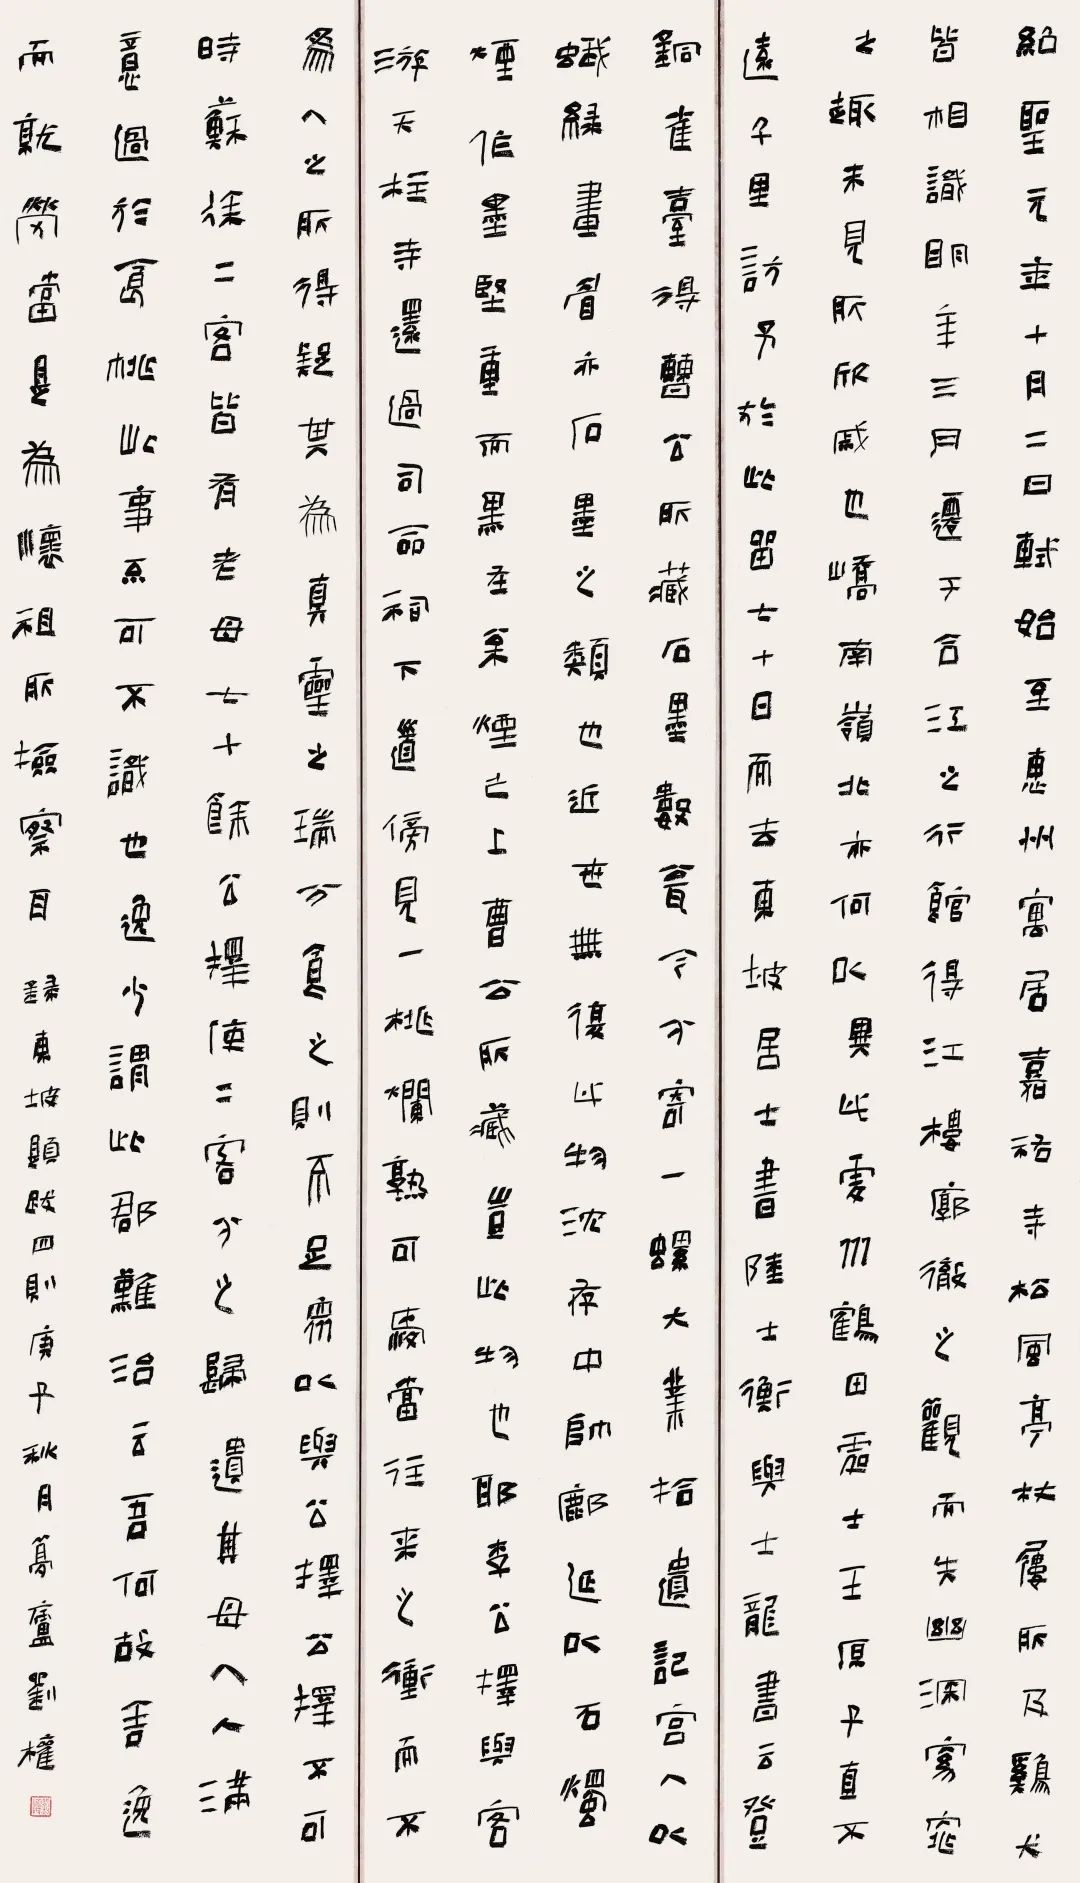 紹聖元年十月二日軾始至惠州寓居嘉祐寺松風亭杖屨所及雞犬
皆相識明年三月遷于合江之行館得江樓廓徹之觀而失幽深窈窕
之趣未見所欣戚也嶠南嶺北亦何以異此虔州鶴田處士王原子直不
遠千里訪予於此留七十日而去東坡居士書陸士衡與士龍書云登
銅雀臺得曹公所藏石墨數甕今分寄一螺大業拾遺記宮人以
蛾綠畫眉亦石墨之類也近世無復此物沈存中帥鄜延以石燭
煙作墨堅重而黑在松煙之上曹公所藏豈此物也耶李公擇與客
游天柱寺還過司命祠下道傍見一桃爛熟可愛當往來之衝而不
為人之所得疑其為真靈之瑞分食之則不足眾以與公擇公擇不可
時蘇徐二客皆有老母七十餘公擇使二客分之歸遺其母人人滿
意過於食桃此事不可不識也逸少謂此郡難治云吾何故舍逸
而就勞當是為懷祖所檢察耳 錄東坡題跋四則庚子秋月篤廬劉權